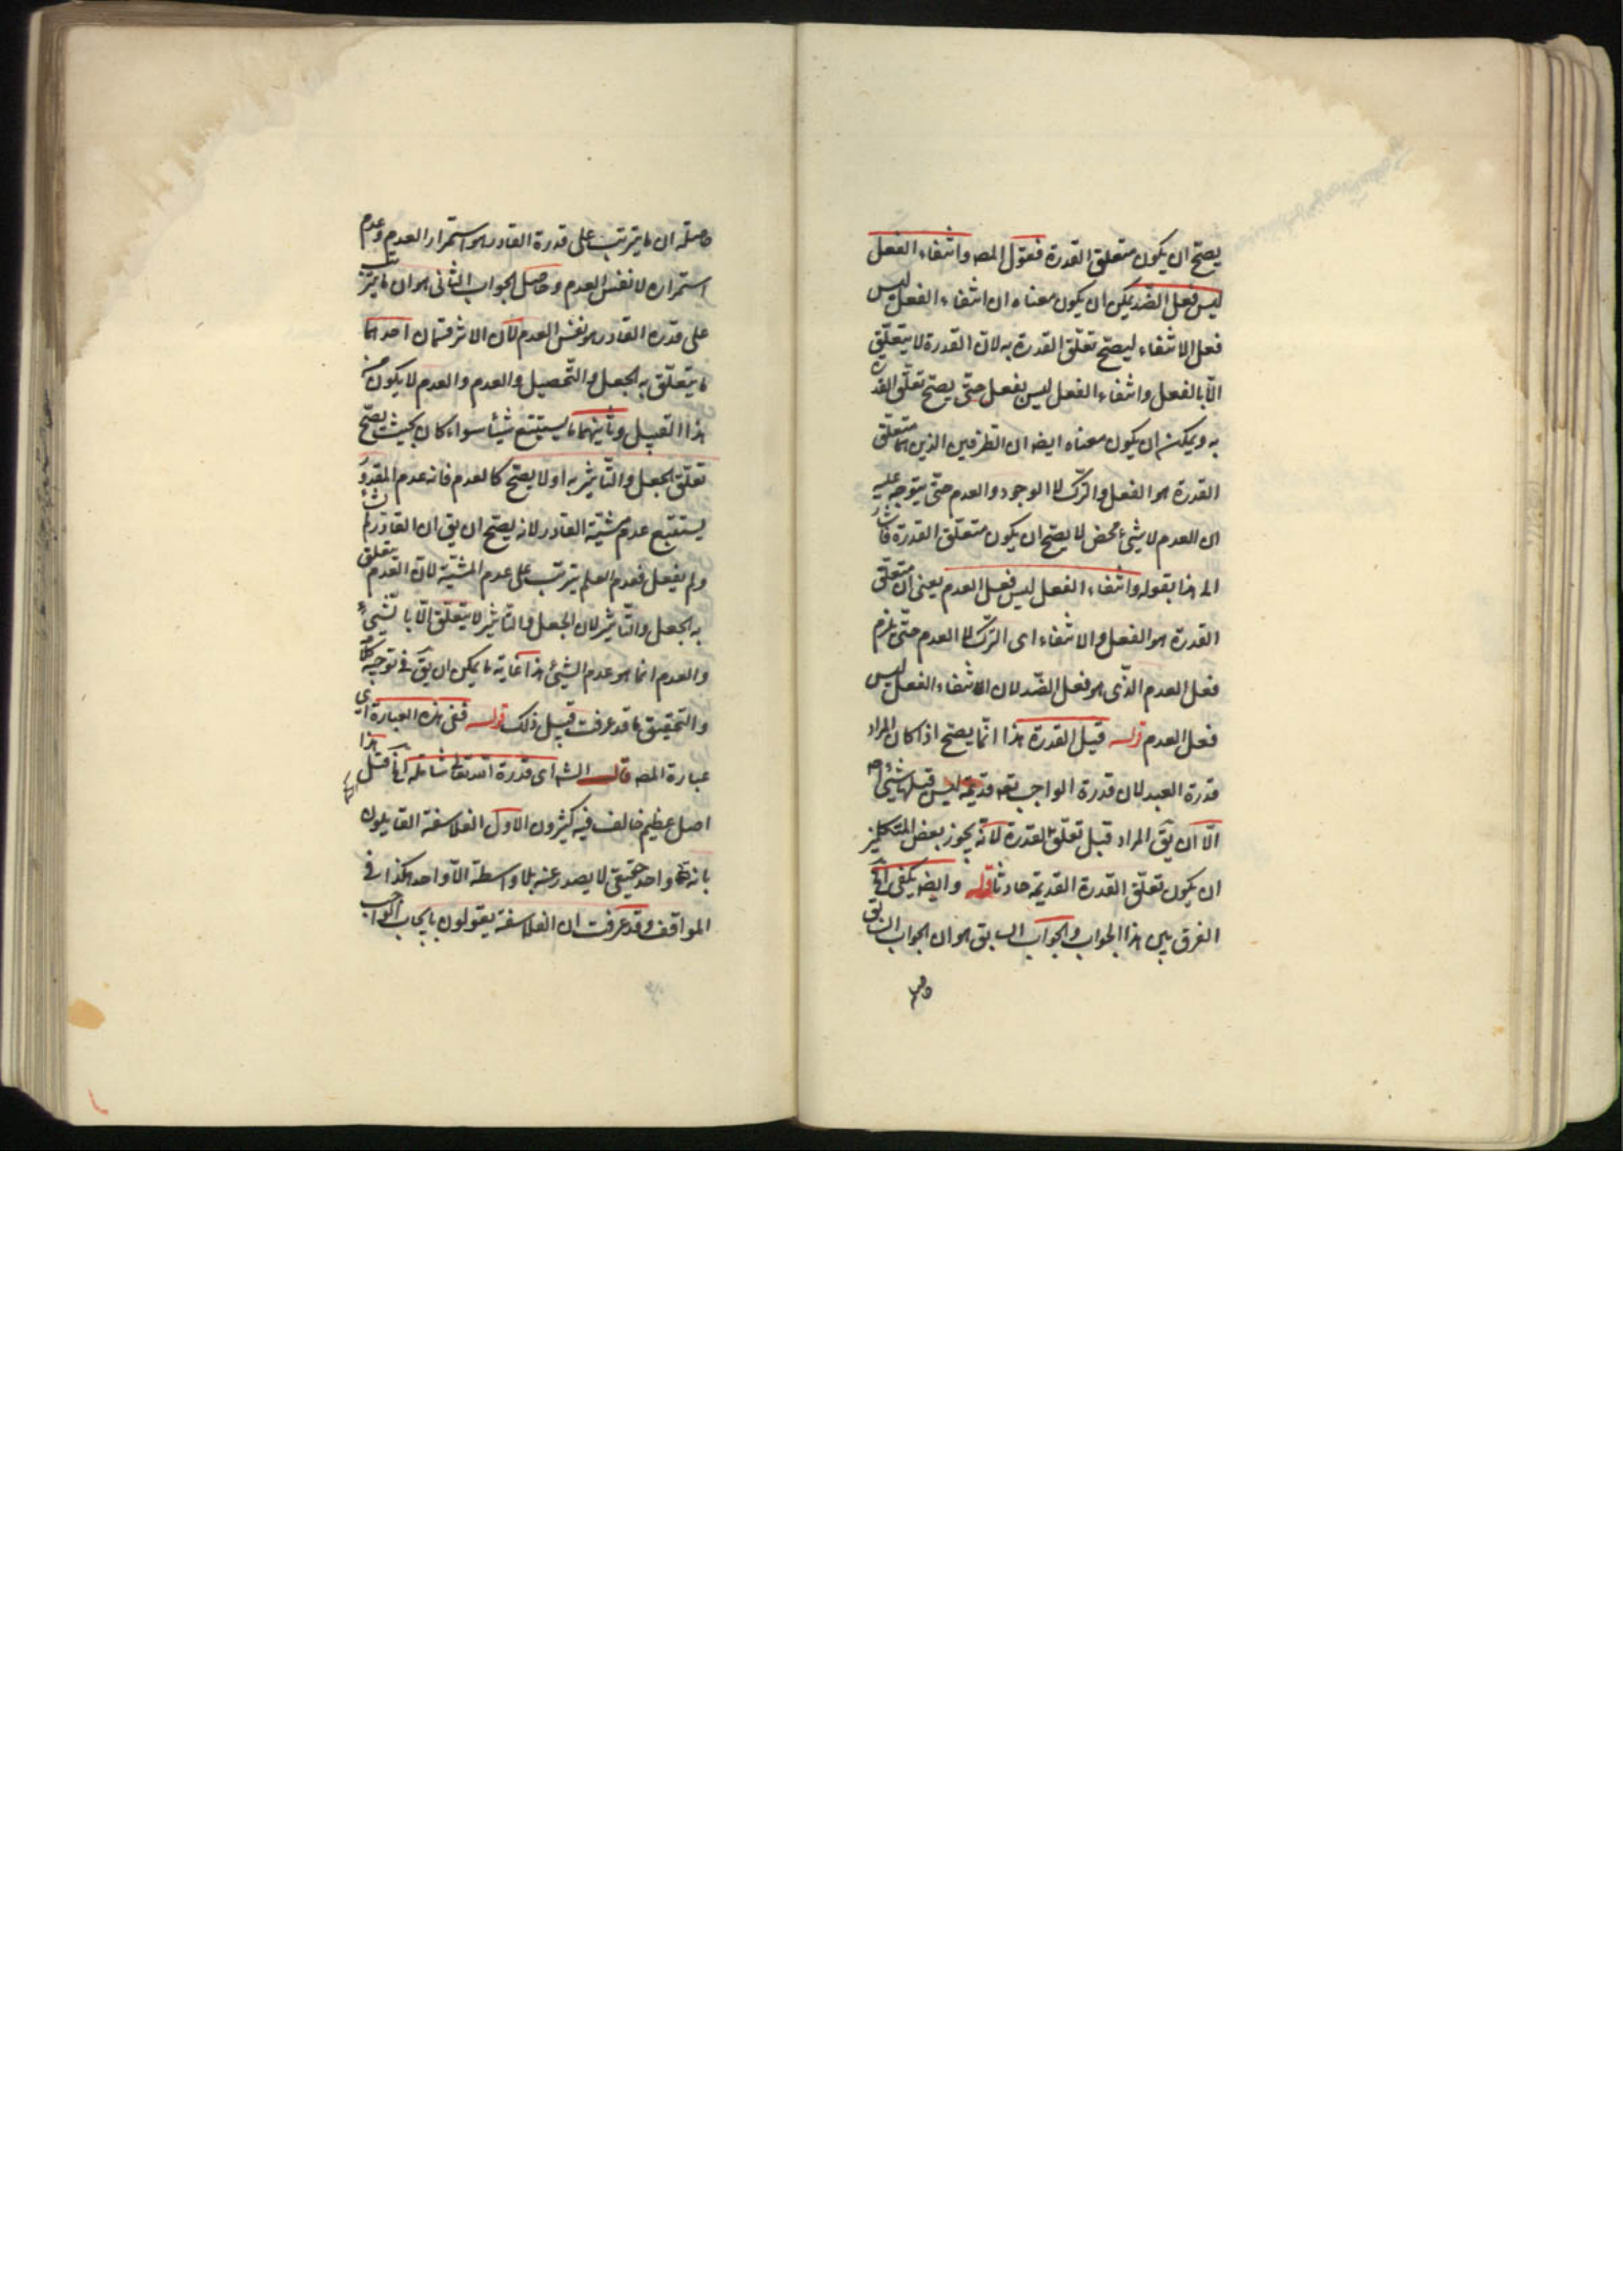 يصح ان يكون متعلق القدرة فقول المصه وانتفاء الفعل
ليس فعل الضد يمكن ان يكون معناه ان انتفاء الفعل ليس
فعل الانتفاء ليصح تعلق القدرة به لان القدرة لا يتعلق
الا بالفعل وانتفاء الفعل ليس بفعل حتى يصح تعلق القدرة
به ويمكن ان يكون معناه ايضه ان الطرفين الذين هما متعلق
القدرة هو الفعل والترك لا الوجود والعدم حتى يتوجه عليه
ان العدم لا شيء محض لا يصح ان يكون متعلق القدرة فاشار
الى هذا بقوله وانتفاء الفعل ليس فعل العدم يعنى ان متعلق
القدرة هو الفعل والانتفاء اى الترك لا العدم حتى يلزم
فعل العدم الذى هو فعل الضد لان الانتفاء الفعل ليس
فعل العدم قوله قيل القدرة هذا انما يصح اذا كان المراد
قدرة العبد لان قدرة الواجب تعه قديمة ليس قبلها شيء
الا ان يق المراد قبل تعلق القدرة لانه يجوز بعض المتكلمين
ان يكون تعلق القدرة القديمة حادثا قوله وايضه يكفى الخ
الفرق بين هذا الجواب والجواب السابق هو ان الجواب السابق
حاصله
حاصله ان ما يترتب على قدرة القادر هو استمرار العدم وعدم
استمراره لا نفس العدم وحاصل الجواب الثانى هو ان ما يترتب
على قدرة القادر هو نفس العدم لان الاثر قسمان احدهما
ما يتعلق به الجعل والتحصيل والعدم والعدم لا يكون من
هذا القبيل وثانيهما ما يستتبع شيئا سواء كان بحيث يصح
تعلق الجعل والتاثير به اولا يصح كالعدم فانه عدم المقدور
يستتبع عدم مشية القادر لانه يصح ان يق ان القادر لم يشأ
ولم يفعل فعدم العلم يترتب على عدم المشية لان العدم يتعلق
به الجعل والتاثير لان الجعل والتاثير لا يتعلق الا بالشيء
والعدم انما هو عدم الشيء هذا غاية ما يمكن ان يق فى توجيه كلامه
والتحقيق ما قد عرفت قبيل ذلك قوله ففى هذه العبارة اى فى
عبارة المصه قال الشه اى قدرة الله تعالى شاملة الخ قيل هذا
اصل عظيم خالف فيه كثيرون الاول الفلاسفة القايلون
بانه تعه واحد حقيقى لا يصدر عنه بلا واسطة الا واحد هكذا فى
المواقف وقد عرفت ان الفلاسفة يقولون بايجاب الواجب